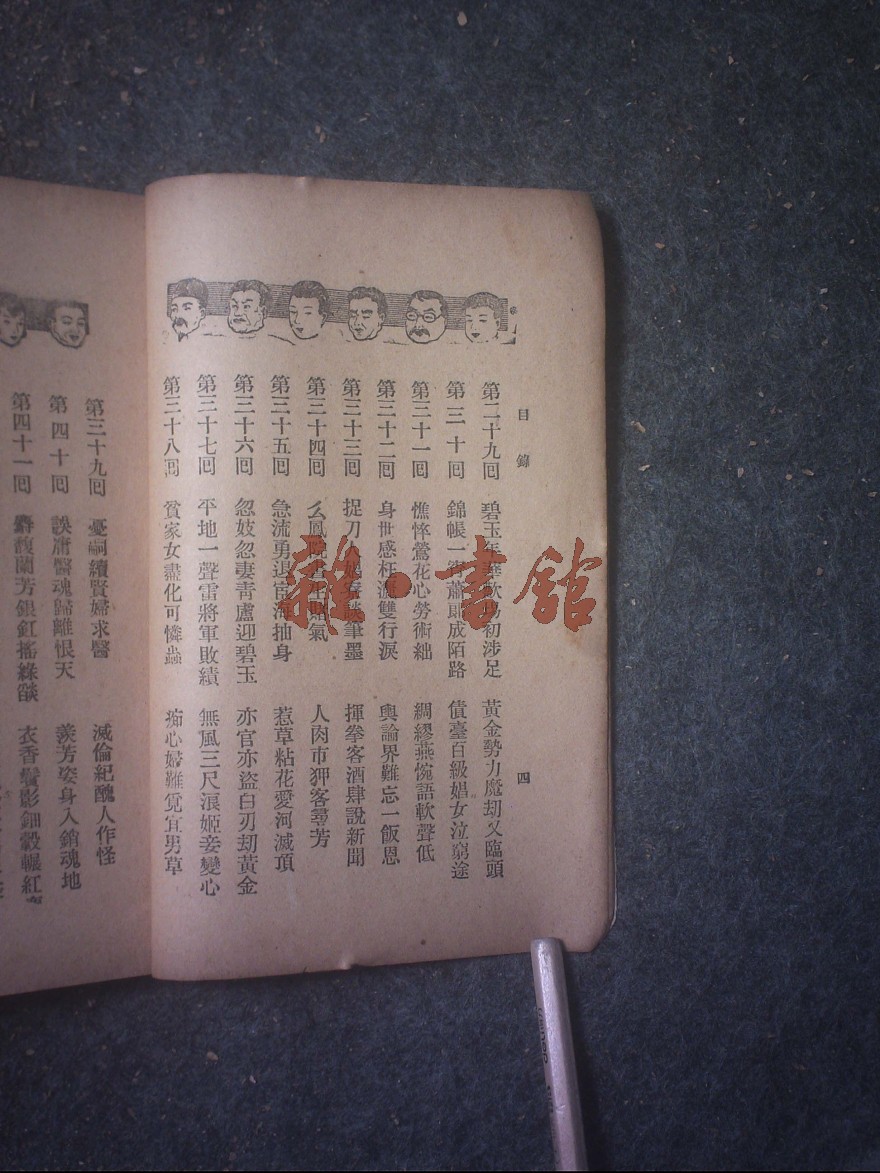 目錄
第二十九回 碧玉年華歡場初涉足 黃金勢力魔劫又臨頭
第三十回 錦帳一宵蕭郎成陌路 債臺百級娼女泣窮途
第三十一回 憔悴鶯花心勞術絀 綢繆燕惋語軟聲低
第三十二回 身世感枉流雙行淚 輿論界難忘一飯恩
第三十三回 捉刀人筆墨 揮拳客酒肆說新聞
第三十四回 么鳳院賭氣 人肉市狎客尋芳
第三十五回 急流勇退宦海抽身 惹草粘花愛河滅頂
第三十六回 忽妓忽妻青盧迎碧玉 亦官亦盜白刃劫黃金
第三十七回 平地一聲雷將軍敗績 無風三尺浪姬妾變心
第三十八回 貧家女盡化可憐蟲 痴心婦難覓宜男草
四
第三十九回 憂嗣續賢婦求醫 滅倫紀醜人作怪
第四十回 誤庸醫魂歸離恨天 羨芳姿身入銷魂地
第四十一回 馥蘭芳銀釭搖綠燄 衣香鬢影鈿轂輾紅
雜·書館